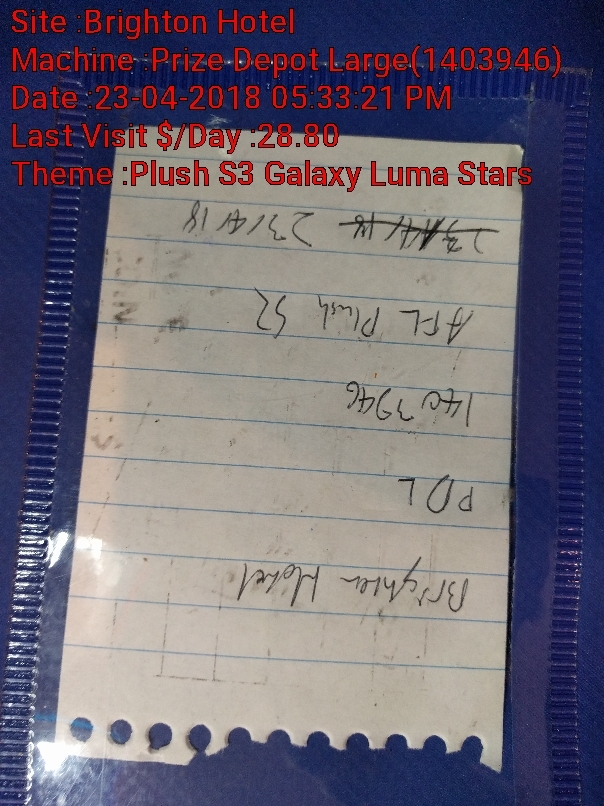 Site :Brighton Hotel
Machine :Prize Depot Large(1403946)
Date :23-04-2018 05:33:21 PM
Last Visit $/Day :28.80
Theme :Plush S3 Galaxy Luma Stars
Brighton Hotel
PDL
1403946
AFL Plush S2
23/4/18 23/4/18